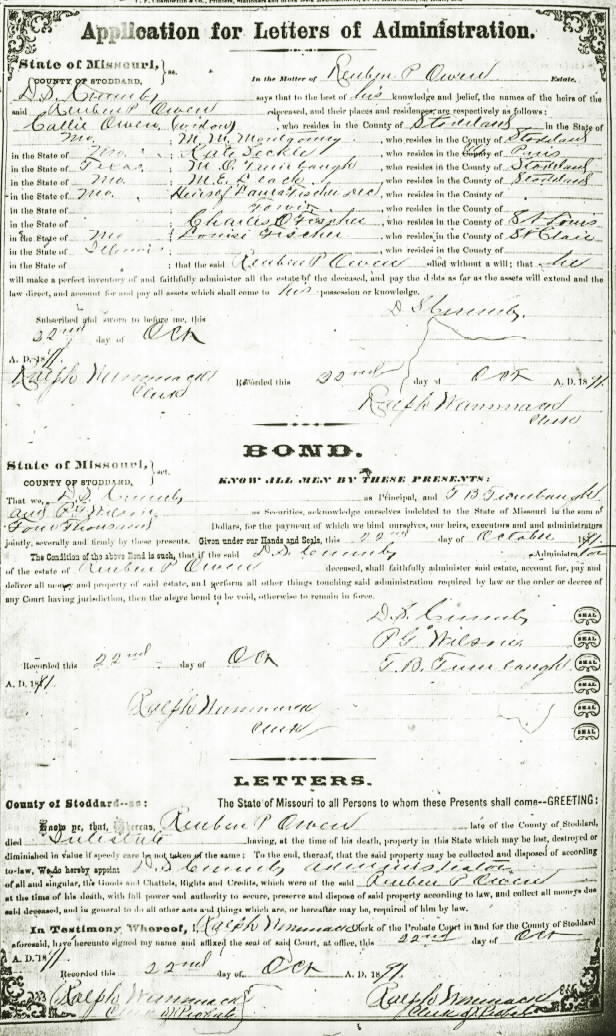 Application for Letters of Administration.
State of Missouri,
COUNTY OF STODDARD, } ss.
In the Matter of Reuben P. Owen Estate.
D. S. Crumby says that to the best of his knowledge and belief, the names of the heirs of the
said Reuben P Owen deceased, and their places and residences are respectively as follows:
Callie Owen (widow), who resides in the County of Stoddard in the State of
Mo. ; M. M. Montgomery, who resides in the County of Stoddard
in the State of Mo. ; Kate, who resides in the County of
in the State of Texas ; M. C. Turnbaugh, who resides in the County of Stoddard
in the State of Mo ; M. E., who resides in the County of Stoddard
in the State of Mo. ; Fischer, who resides in the County of
in the State of, who resides in the County of
in the State of ; Charles Fischer, who resides in the County of St. Louis
in the State of Mo ; Louise Fischer, who resides in the County of St Clair
in the State of Illinois, who resides in the County of
in the State of ; that the said Reuben P Owen died without a will; that he
will make a perfect inventory of and faithfully administer all the estate of the deceased, and pay the debts as far as the assets will extend and the
law direct, and account for and pay all assets which shall come to his possession or knowledge.
D S Crumby.
Subscribed and sworn to before me, this
22nd day of Oct
A. D. 18
Ralph Wammack
Clerk
Recorded this 22nd day of Oct A. D. 18
Ralph Wammack
Clerk
BOND.
State of Missouri,
COUNTY OF STODDARD, } sct.
KNOW ALL MEN BY THESE PRESENTS:
That we, D. S. Crumby as Principal, and T B Turnbaugh
and P. G. Wilson as Securities, acknowledge ourselves indebted to the State of Missouri in the sum of
Four Thousand Dollars, for the payment of which we bind ourselves, our heirs, executors and and administrators
jointly, severally and firmly by these presents. Given under our Hands and Seals, this 22nd day of October 18
The Condition of the above Bond is such, that if the said D. S. Crumby Administrator
of the estate of Reuben P Owen deceased, shall faithfully administer said estate, account for, pay and
deliver all money and property of said estate, and perform all other things touching said administration required by law or the order or decree
of any Court having jurisdiction, then the above bond to be void, otherwise to remain in force.
D. S. Crumby SEAL
P G Wilson SEAL
T. B. Turnbaugh SEAL
SEAL
SEAL
SEAL
Recorded this 22nd day of Oct
A. D. 18
Ralph Wammack
Clerk
LETTERS.
County of Stoddard--ss:
The State of Missouri to all Persons to whom these Presents shall come--GREETING:
Know ye, that, Whereas, Reuben P Owen late of the County of Stoddard,
died Intestate having, at the time of his death, property in this State which may be lost, destroyed or
diminished in value if speedy care be not taken of the same; To the end, thereaf, that the said property may be collected and disposed of according
to-law, We do hereby appoint D S Crumby administrator
of all and singular, the Goods and Chattels, Rights and Credits, which were of the said Reuben P Owen
at the time of his death, with full power and authority to secure, preserve and dispose of said property according to law, and collect all moneys due
said deceased, and in general to do all other acts and things which are, or hereafter may be, required of him by law.
In Testimony Whereof, I, Ralph Wammack Clerk of the Probate Court in and for the County of Stoddard
aforesaid, have hereunto signed my name and affixed the seal of said Court, at office, this 22nd day of Oct
A. D. 18
Recorded this 22nd day of Oct A. D. 18
Ralph Wammack
Clerk of Probate
Ralph Wammack
Clerk of Probate